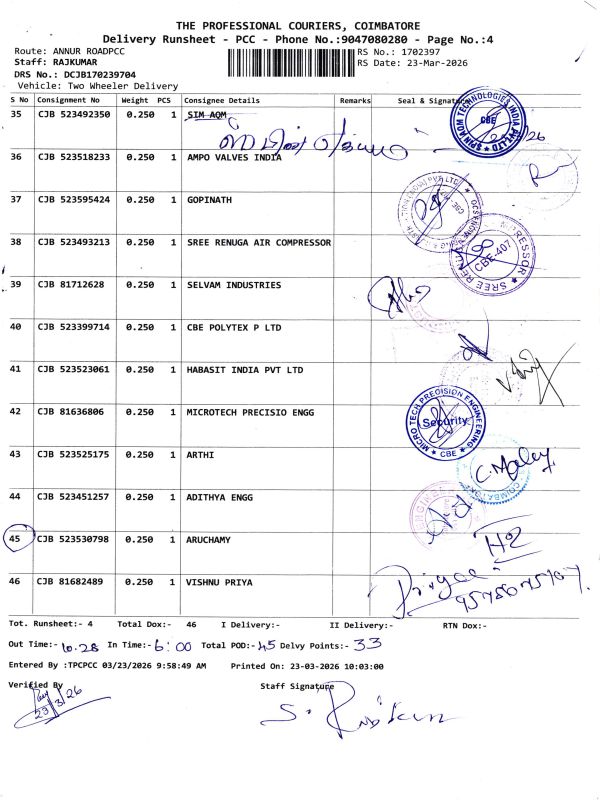 THE PROFESSIONAL COURIERS, COIMBATORE
Delivery Runsheet - PCC - Phone No.:9047080280 - Page No.:4
Route: ANNUR ROADPCC RS No.: 1702397
Staff: RAJKUMAR RS Date: 23-Mar-2026
DRS No.: DCJB170239704
Vehicle: Two Wheeler Delivery
S No Consignment No Weight PCS Consignee Details Remarks Seal & Signature
35 CJB 523492350 0.250 1 SIM AQM
36 CJB 523518233 0.250 1 AMPO VALVES INDIA
37 CJB 523595424 0.250 1 GOPINATH
38 CJB 523493213 0.250 1 SREE RENUGA AIR COMPRESSOR
CBE-407
39 CJB 81712628 0.250 1 SELVAM INDUSTRIES
40 CJB 523399714 0.250 1 CBE POLYTEX P LTD
41 CJB 523523061 0.250 1 HABASIT INDIA PVT LTD
42 CJB 81636806 0.250 1 MICROTECH PRECISIO ENGG
MICRO TECH PRECISION ENGINEERING
Security
CBE
43 CJB 523525175 0.250 1 ARTHI
44 CJB 523451257 0.250 1 ADITHYA ENGG
45 CJB 523530798 0.250 1 ARUCHAMY
46 CJB 81682489 0.250 1 VISHNU PRIYA
Tot. Runsheet:- 4 Total Dox:- 46 I Delivery:- II Delivery:- RTN Dox:-
Out Time:- 10.28 In Time:- 6:00 Total POD:- 45 Delvy Points:- 33
Entered By :TPCPCC 03/23/2026 9:58:49 AM Printed On: 23-03-2026 10:03:00
Verified By Staff Signature
23/3/26